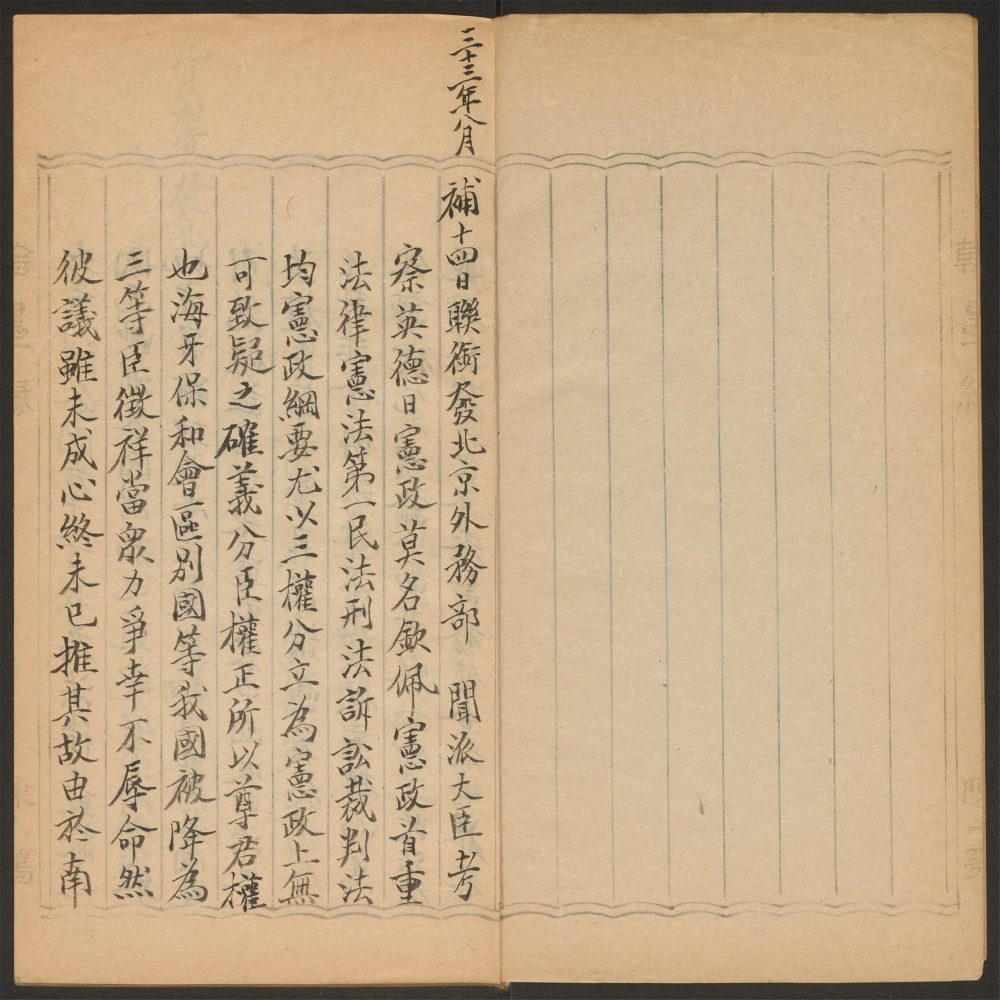 三十三年八月
補十四日聯銜發北京外務部　聞派大臣考
察英德日憲政莫名欽佩憲政首重
法律憲法第一民法刑法訴訟裁判法
均憲政綱要尤以三權分立為憲政上無
可致疑之確義分臣權正所以尊君權
也海牙保和會區別國等我國被降為
三等臣徵祥當眾力爭幸不辱命然
彼議雖未成心終未已推其故由於南